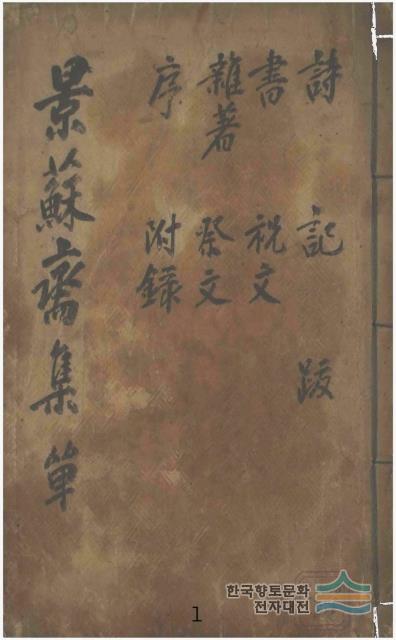 詩 記 跋
書 祝文
雜著 祭文
序 附錄
景蘇齋集 單
한국향토문화
전자대전
1